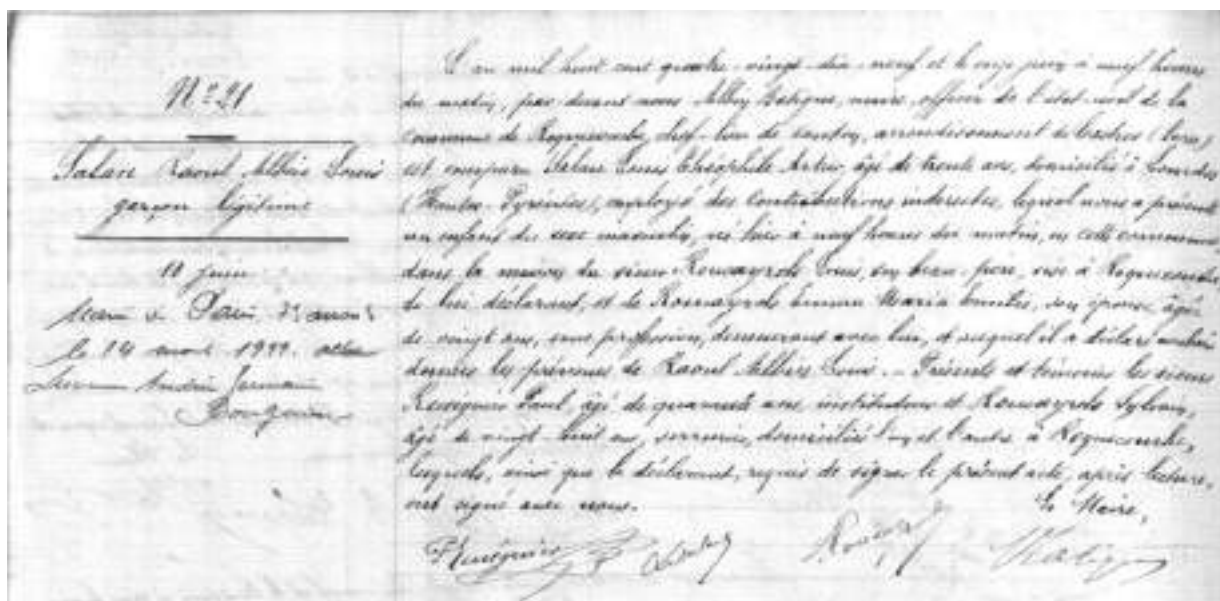 N° 21
Salan Raoul Albin Louis
garçon légitime
11 juin
Marié à Paris
le 14 1911 acte
Lucienne Andrée Germaine
Bouguin
L'an mil huit cent quatre-vingt-dix-neuf et le onze juin à neuf heures
du matin, par devant nous Albin Batigne, maire, officier de l'état-civil de la
commune de Roquecourbe, chef-lieu de canton, arrondissement de Castres (Tarn)
est comparu Salan Louis Théophile, âgé de trente ans, domicilié à Lourdes
(Hautes-Pyrénées), employé des Contributions indirectes, lequel nous a présenté
un enfant du sexe masculin, né hier à neuf heures du matin, en cette commune,
dans la maison du sieur Rouayrols Louis, son beau-père, sise à Roquecourbe
de lui déclarant, et de Rouayrols Emma Maria, son épouse, âgée
de vingt ans, sans profession, demeurant avec lui, et auquel il a déclaré vouloir
donner les prénoms de Raoul Albin Louis. – Présents et témoins les sieurs
Rességuier Paul, âgé de quarante ans, instituteur et Rouayrols Sylvain,
âgé de vingt-huit ans, serrurier, domiciliés l'un et l'autre à Roquecourbe,
lesquels, ainsi que le déclarant, requis de signer le présent acte, après lecture,
ont signé avec nous.
Le Maire,
Rességuier
Batigne